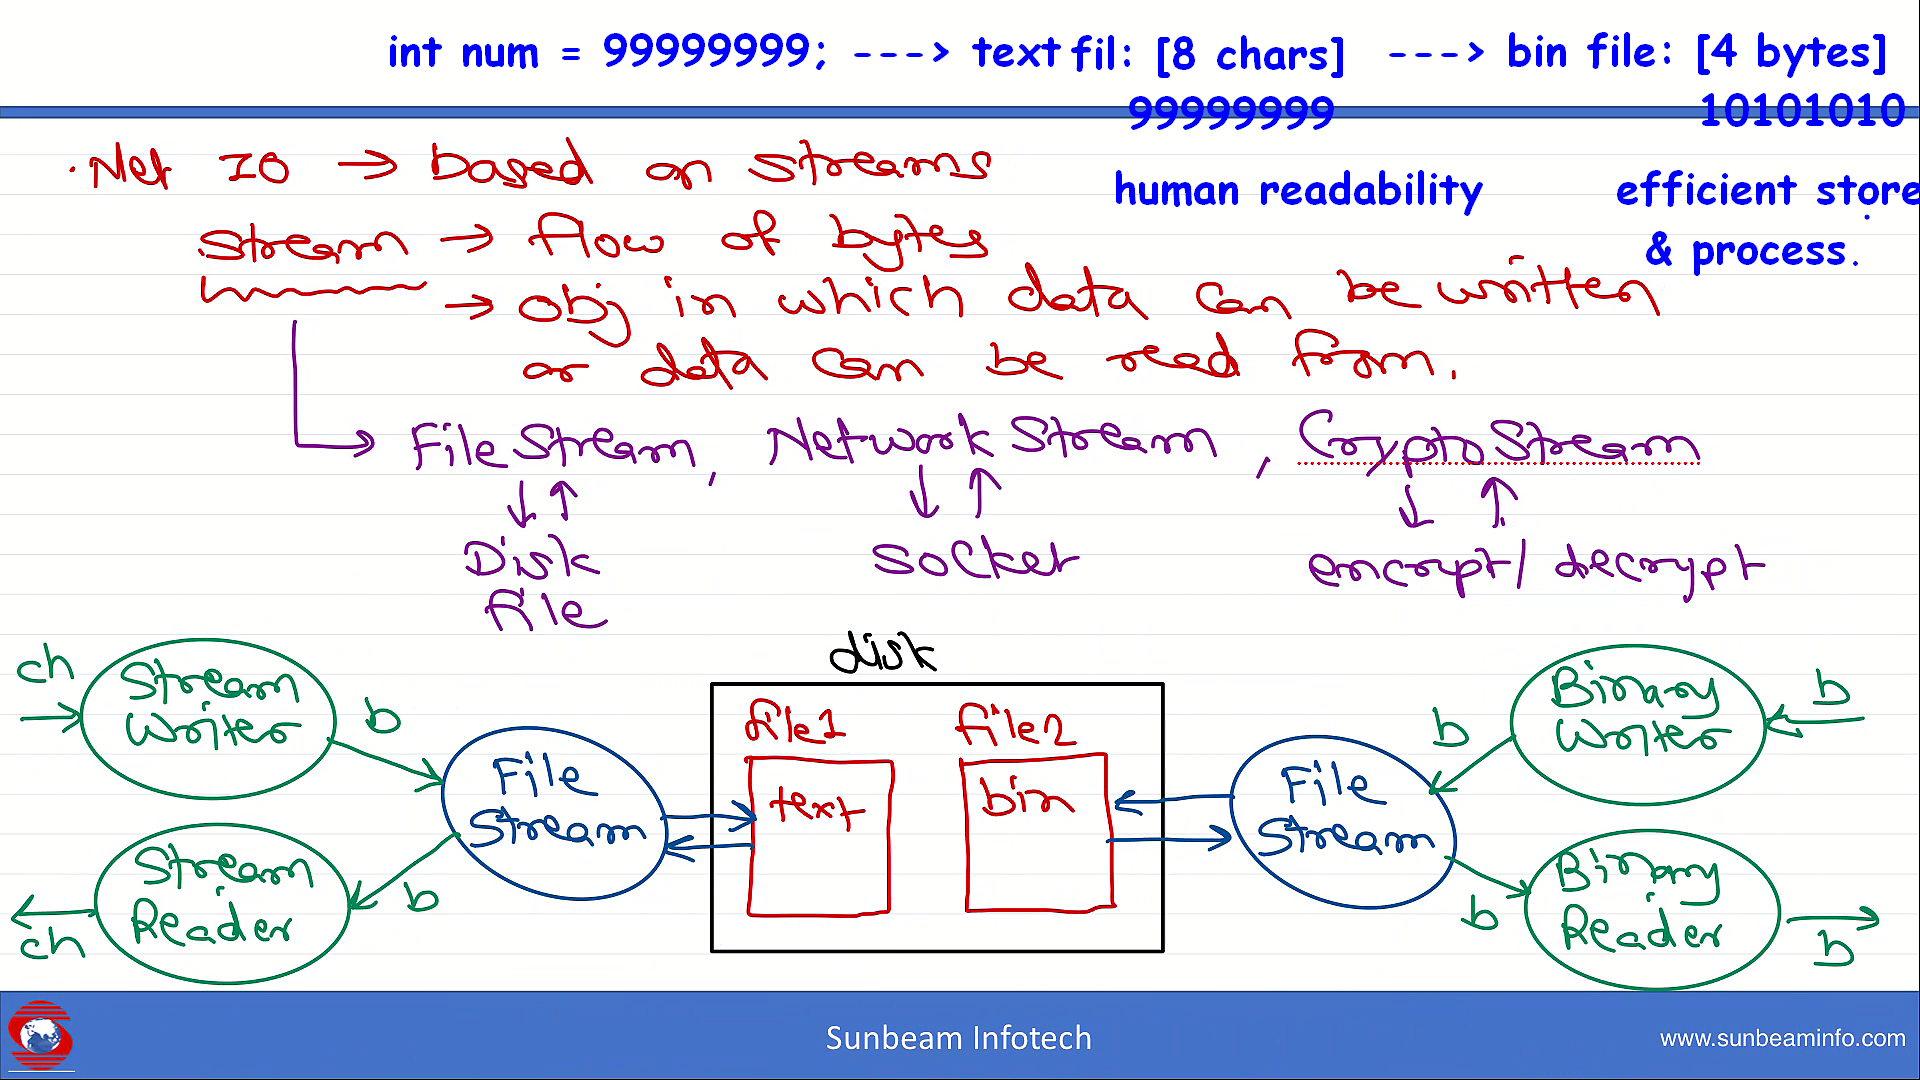 int num = 99999999; ---> text fil: [8 chars] ---> bin file: [4 bytes]
99999999 10101010
human readability efficient store
& process.
. Net IO → based on streams
stream → flow of bytes
→ obj in which data can be written
or data can be read from.
FileStream, NetworkStream, CryptoStream
Disk file
socket
encrypt/decrypt
disk
ch
Stream Writer
b
File Stream
file1
text
file2
bin
File Stream
b
Binary Writer
b
Stream Reader
b
ch
b
Binary Reader
b
Sunbeam Infotech
www.sunbeaminfo.com